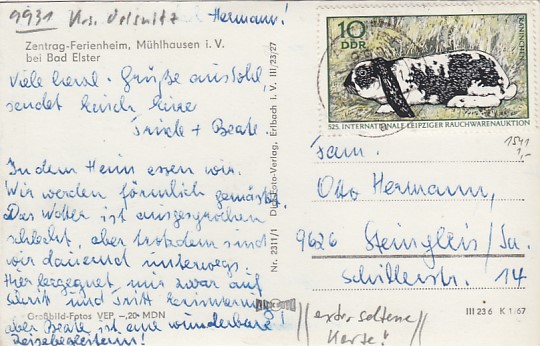 9931 Krs. Oelsnitz
Hermann!
Zentrag-Ferienheim, Mühlhausen i. V.
bei Bad Elster
Viele herzl. Grüße
sendet
+ Beate.
In dem Heim essen wir.
Wir werden förmlich gemästet.
Das Wetter ist ausgesprochen
schlecht, aber trotzdem sind
wir dauernd unterwegs.
Hier begegnet mir zwar auf
Schritt und Tritt
aber Beate ist eine wunderbare
Reisebegleiterin!
Großbild-Fotos VEP -,20 MDN
Nr. 2311/1 Dick-Foto-Verlag, Erlbach i. V. III/23/27
10
DDR
KANINCHEN
525. INTERNATIONALE LEIPZIGER RAUCHWARENAUKTION
1541
1,-
Fam.
Otto Hermann,
9626 Steinpleis/Sa.
Schillerstr. 14
III 23 6 K 1/67
extra seltene
Karte!